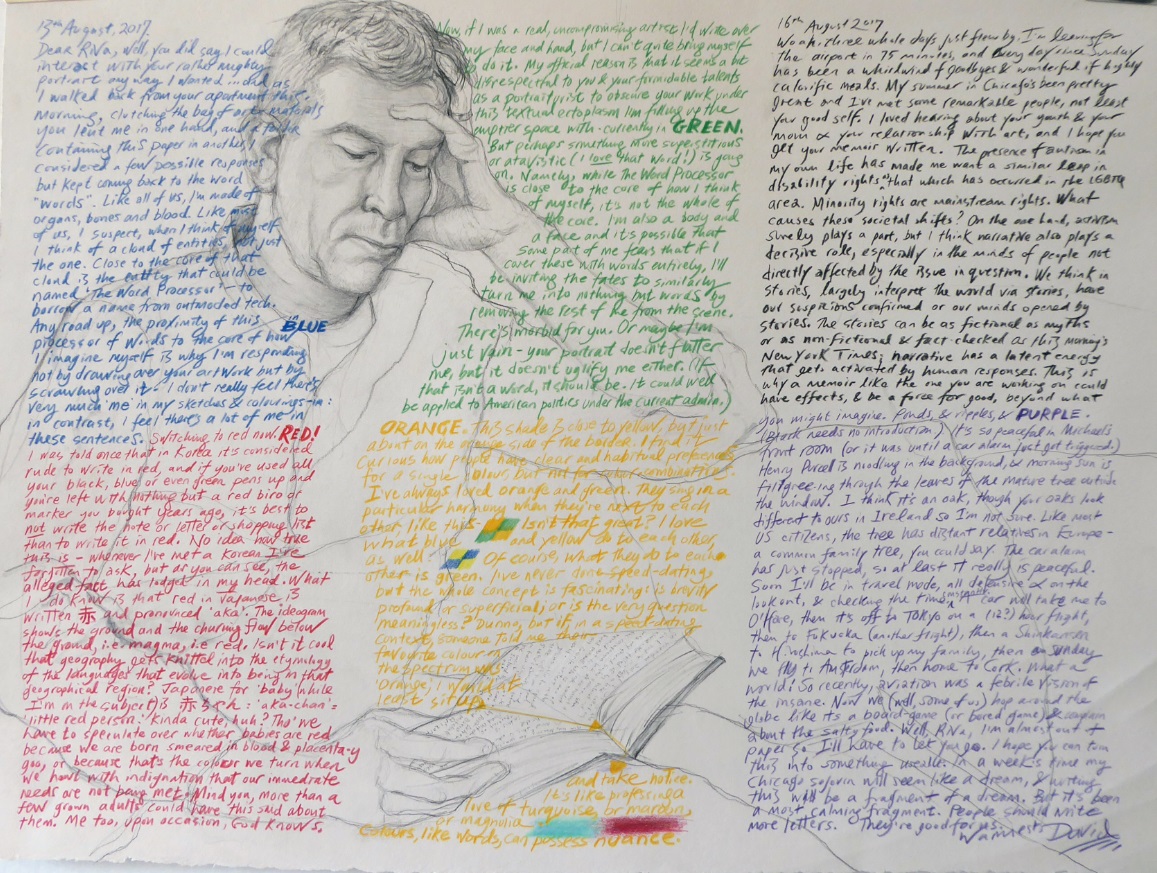 13th August, 2017.
Dear Riva, Well, you did say I could
interact with your rather mighty
portrait any way I wanted... and as
I walked back from your apartment this
morning, clutching the bag of art materials
you lent me in one hand, and a folder
containing this paper in another, I
considered a few possible responses
but kept coming back to the word
"words". Like all of us, I'm made of
organs, bones and blood. Like most
of us, I suspect, when I think of myself
I think of a cloud of entities, not just
the one. Close to the core of that
cloud is the entity that could be
named 'The Word Processor' – to
borrow a name from outmoded tech.
Any road up, the proximity of this
processor of words to the core of how in BLUE
I imagine myself is why I'm responding
not by drawing over your artwork but by
scrawling over it – I don't really feel there's
very much 'me' in my sketches & colourings-in:
in contrast, I feel there's a lot of me in
these sentences. Switching to red now. RED!
I was told once that in Korea it's considered
rude to write in red, and if you've used all
your black, blue or even green pens up and
you're left with nothing but a red biro or
marker you bought years ago, it's best to
not write the note or letter or shopping list
than to write it in red. No idea how true
this is – whenever I've met a Korean I've
forgotten to ask, but as you can see, the
alleged fact has lodged in my head. What
I do know is that red in Japanese is
written 赤 and pronounced 'aka'. The ideogram
shows the ground and the churning flow below
the ground, i.e. magma, i.e. red. Isn't it cool
that geography gets knitted into the etymology
of the languages that evolve into being in that
geographical region? Japanese for 'baby' (while
I'm on the subject) is 赤ちゃん: 'aka-chan' =
little red person. Kinda cute, huh? Tho' we
have to speculate over whether babies are red
because we are born smeared in blood & placenta-y
goo, or because that's the colour we turn when
we howl with indignation that our immediate
needs are not being met. Mind you, more than a
few grown adults could have this said about
them. Me too, upon occasion, God knows.
Now, if I was a real, uncompromising artist I'd write over
my face and hand, but I can't quite bring myself
to do it. My official reason is that it seems a bit
disrespectful to you & your formidable talents
as a portraitist to obscure your work under
this textual ectoplasm I'm filling up the
emptier space with - currently in GREEN.
But perhaps something more superstitious
or atavistic (I love that word!) is going
on. Namely, while The Word Processor
is close to the core of how I think
of myself, it's not the whole of
the core. I'm also a body and
a face, and it's possible that
some part of me fears that if I
cover these with words entirely, I'll
be inviting the fates to similarly
turn me into nothing but words by
removing the rest of me from the scene.
There's morbid for you. Or maybe I'm
just vain - your portrait doesn't flatter
me, but it doesn't uglify me either. (If
that isn't a word, it should be. It could well
be applied to American politics under the current admin.)
ORANGE. This shade is close to yellow, but just
about on the orange side of the border. I find it
curious how people have clear and habitual preferences
for a single colour, but not for colour-combinations.
I've always loved orange and green. They sing in a
particular harmony when they're next to each
other, like this - Isn't that great? I love
what blue and yellow do to each other,
as well: Of course, what they do to each
other is green. I've never done speed-dating,
but the whole concept is fascinating: is brevity
profound or superficial, or is the very question
meaningless? Dunno, but if, in a speed-dating
context, someone told me their
favourite colour in
the spectrum was
'Orange', I would at
least sit up
and take notice.
It's like professing a
love of turquoise, or maroon,
or magnolia
Colours, like words, can possess nuance.
16th August 2017
Woah. Three whole days just flew by. I'm leaving for
the airport in 75 minutes, and every day since Sunday
has been a whirlwind of goodbyes & wonderful if highly
calorific meals. My summer in Chicago's been pretty
great and I've met some remarkable people, not least
your good self. I loved hearing about your youth & your
mom & your relationship with art, and I hope you
get your memoir written. The presence of autism in
my own life has made me want a similar leap in
disability rights to that which has occurred in the LGBTQ
area. Minority rights are mainstream rights. What
causes these societal shifts? On the one hand, activism
surely plays a part, but I think narrative also plays a
decisive role, especially in the minds of people not
directly affected by the issue in question. We think in
stories, largely interpret the world via stories, have
our suspicions confirmed or our minds opened by
stories. The stories can be as fictional as myths
or as non-fictional & fact-checked as this morning's
New York Times; narrative has a latent energy
that gets activated by human responses. This is
why a memoir like the one you are working on could
have effects, & be a force for good, beyond what
you might imagine. Ponds, & ripples, & PURPLE.
(Black needs no introduction.) It's so peaceful in Michael's
front room (or it was until a car alarm just got triggered.)
Henry Purcell is noodling in the background, & morning sun is
filigree-ing through the leaves of the mature tree outside
the window. I think it's an oak, though your oaks look
different to ours in Ireland so I'm not sure. Like most
US citizens, the tree has distant relatives in Europe -
a common family tree, you could say. The car alarm
has just stopped, so at last it really is peaceful.
Soon I'll be in travel mode, all defensive & on the
lookout, & checking the time & my passport. A car will take me to
O'Hare, then it's off to TOKYO on a (12?) hour flight,
then to Fukuoka (another flight), then a Shinkansen
to Hiroshima to pick up my family, then on Sunday
we fly to Amsterdam, then home to Cork. What a
world! So recently, aviation was a febrile vision of
the insane. Now we (well, some of us) hop around the
globe like it's a board-game (or bored game) & complain
about the salty food. Well, Riva, I'm almost out of
paper so I'll have to let you go. I hope you can turn
this into something usable. In a week's time my
Chicago sojourn will seem like a dream, & writing
this will be a fragment of a dream. But it's been
a most calming fragment. People should write
more letters. They're good for us.
Warmest David